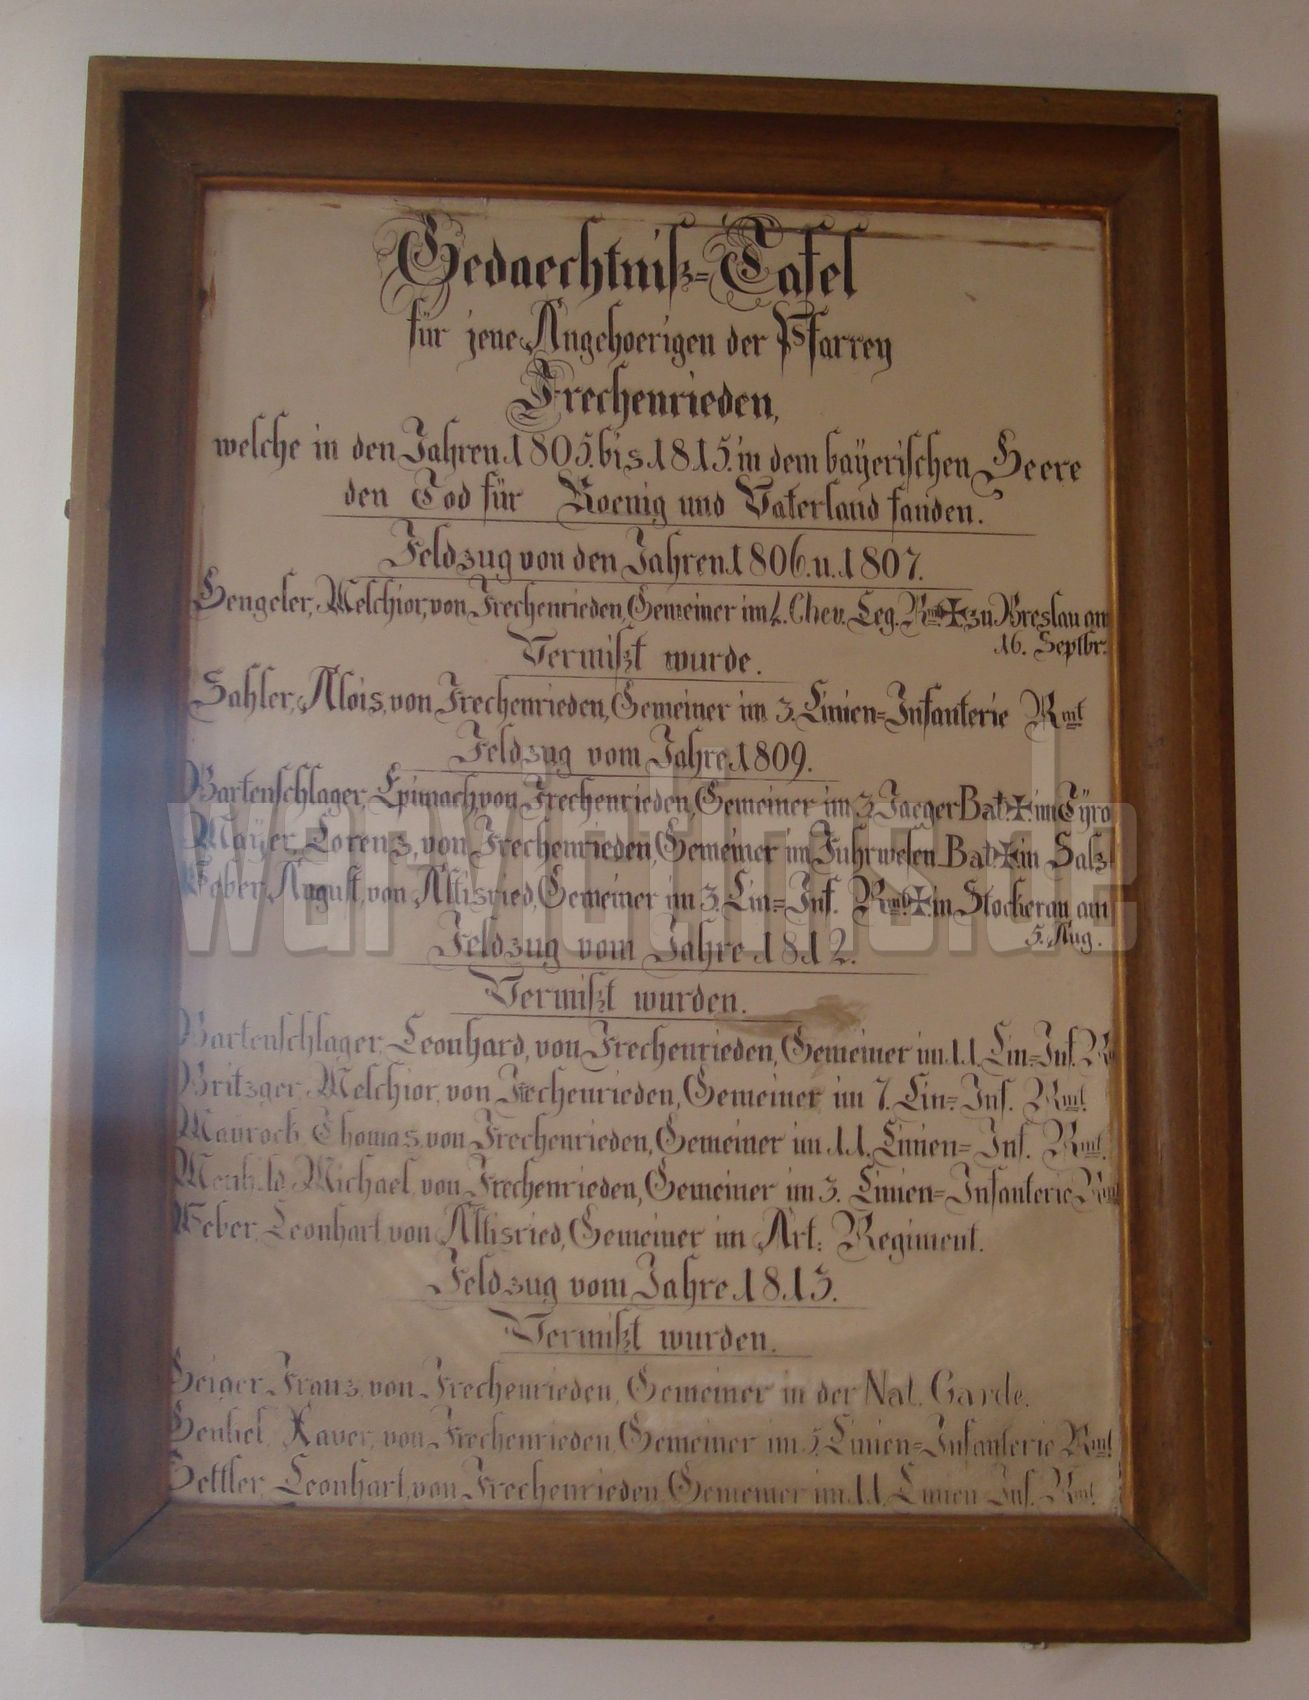 Gedaechtniß=Tafel
für jene Angehoerigen der Pfarrey
Frechenrieden,
welche in den Jahren 1805. bis 1815. in dem bayerischen Heere
den Tod für Koenig und Vaterland fanden.
Feldzug von den Jahren 1806. u. 1807.
Hengeler, Melchior, von Frechenrieden, Gemeiner im 4. Chev. Leg. Rmt. ✠ zu Breslau am
16. Septbr.
Vermißt wurde.
Sahler, Alois, von Frechenrieden, Gemeiner im 3. Linien=Infanterie Rmt
Feldzug vom Jahre 1809.
Bartenschlager, Epimach, von Frechenrieden, Gemeiner im 3. Jaeger Bat. ✠ im Tyro
Mayer, Lorenz, von Frechenrieden, Gemeiner im Fuhrwesen Bat. ✠ in Salz
Weber, August, von Altisried, Gemeiner im 3. Lin.=Inf. Rmt. ✠ in Stockerau am
5. Aug.
Feldzug vom Jahre 1812.
Vermißt wurden.
Bartenschlager, Leonhard, von Frechenrieden, Gemeiner im 11. Lin.=Inf.
Britzger, Melchior, von Frechenrieden, Gemeiner im 7. Lin=Inf. Rmt.
Thomas, von Frechenrieden, Gemeiner im 11. Linien=Inf. Rmt.
Michael, von Frechenrieden, Gemeiner im 3. Linien=Infanterie Rmt
Weber, Leonhart, von Altisried, Gemeiner im Art: Regiment.
Feldzug vom Jahre 1813.
Vermißt wurden.
Geiger, Franz, von Frechenrieden, Gemeiner in der Nat. Garde.
Xaver, von Frechenrieden, Gemeiner im 5. Linien=Infanterie Rmt
Leonhart, von Frechenrieden, Gemeiner im 11. Linien Inf. Rmt.
warvictims.de